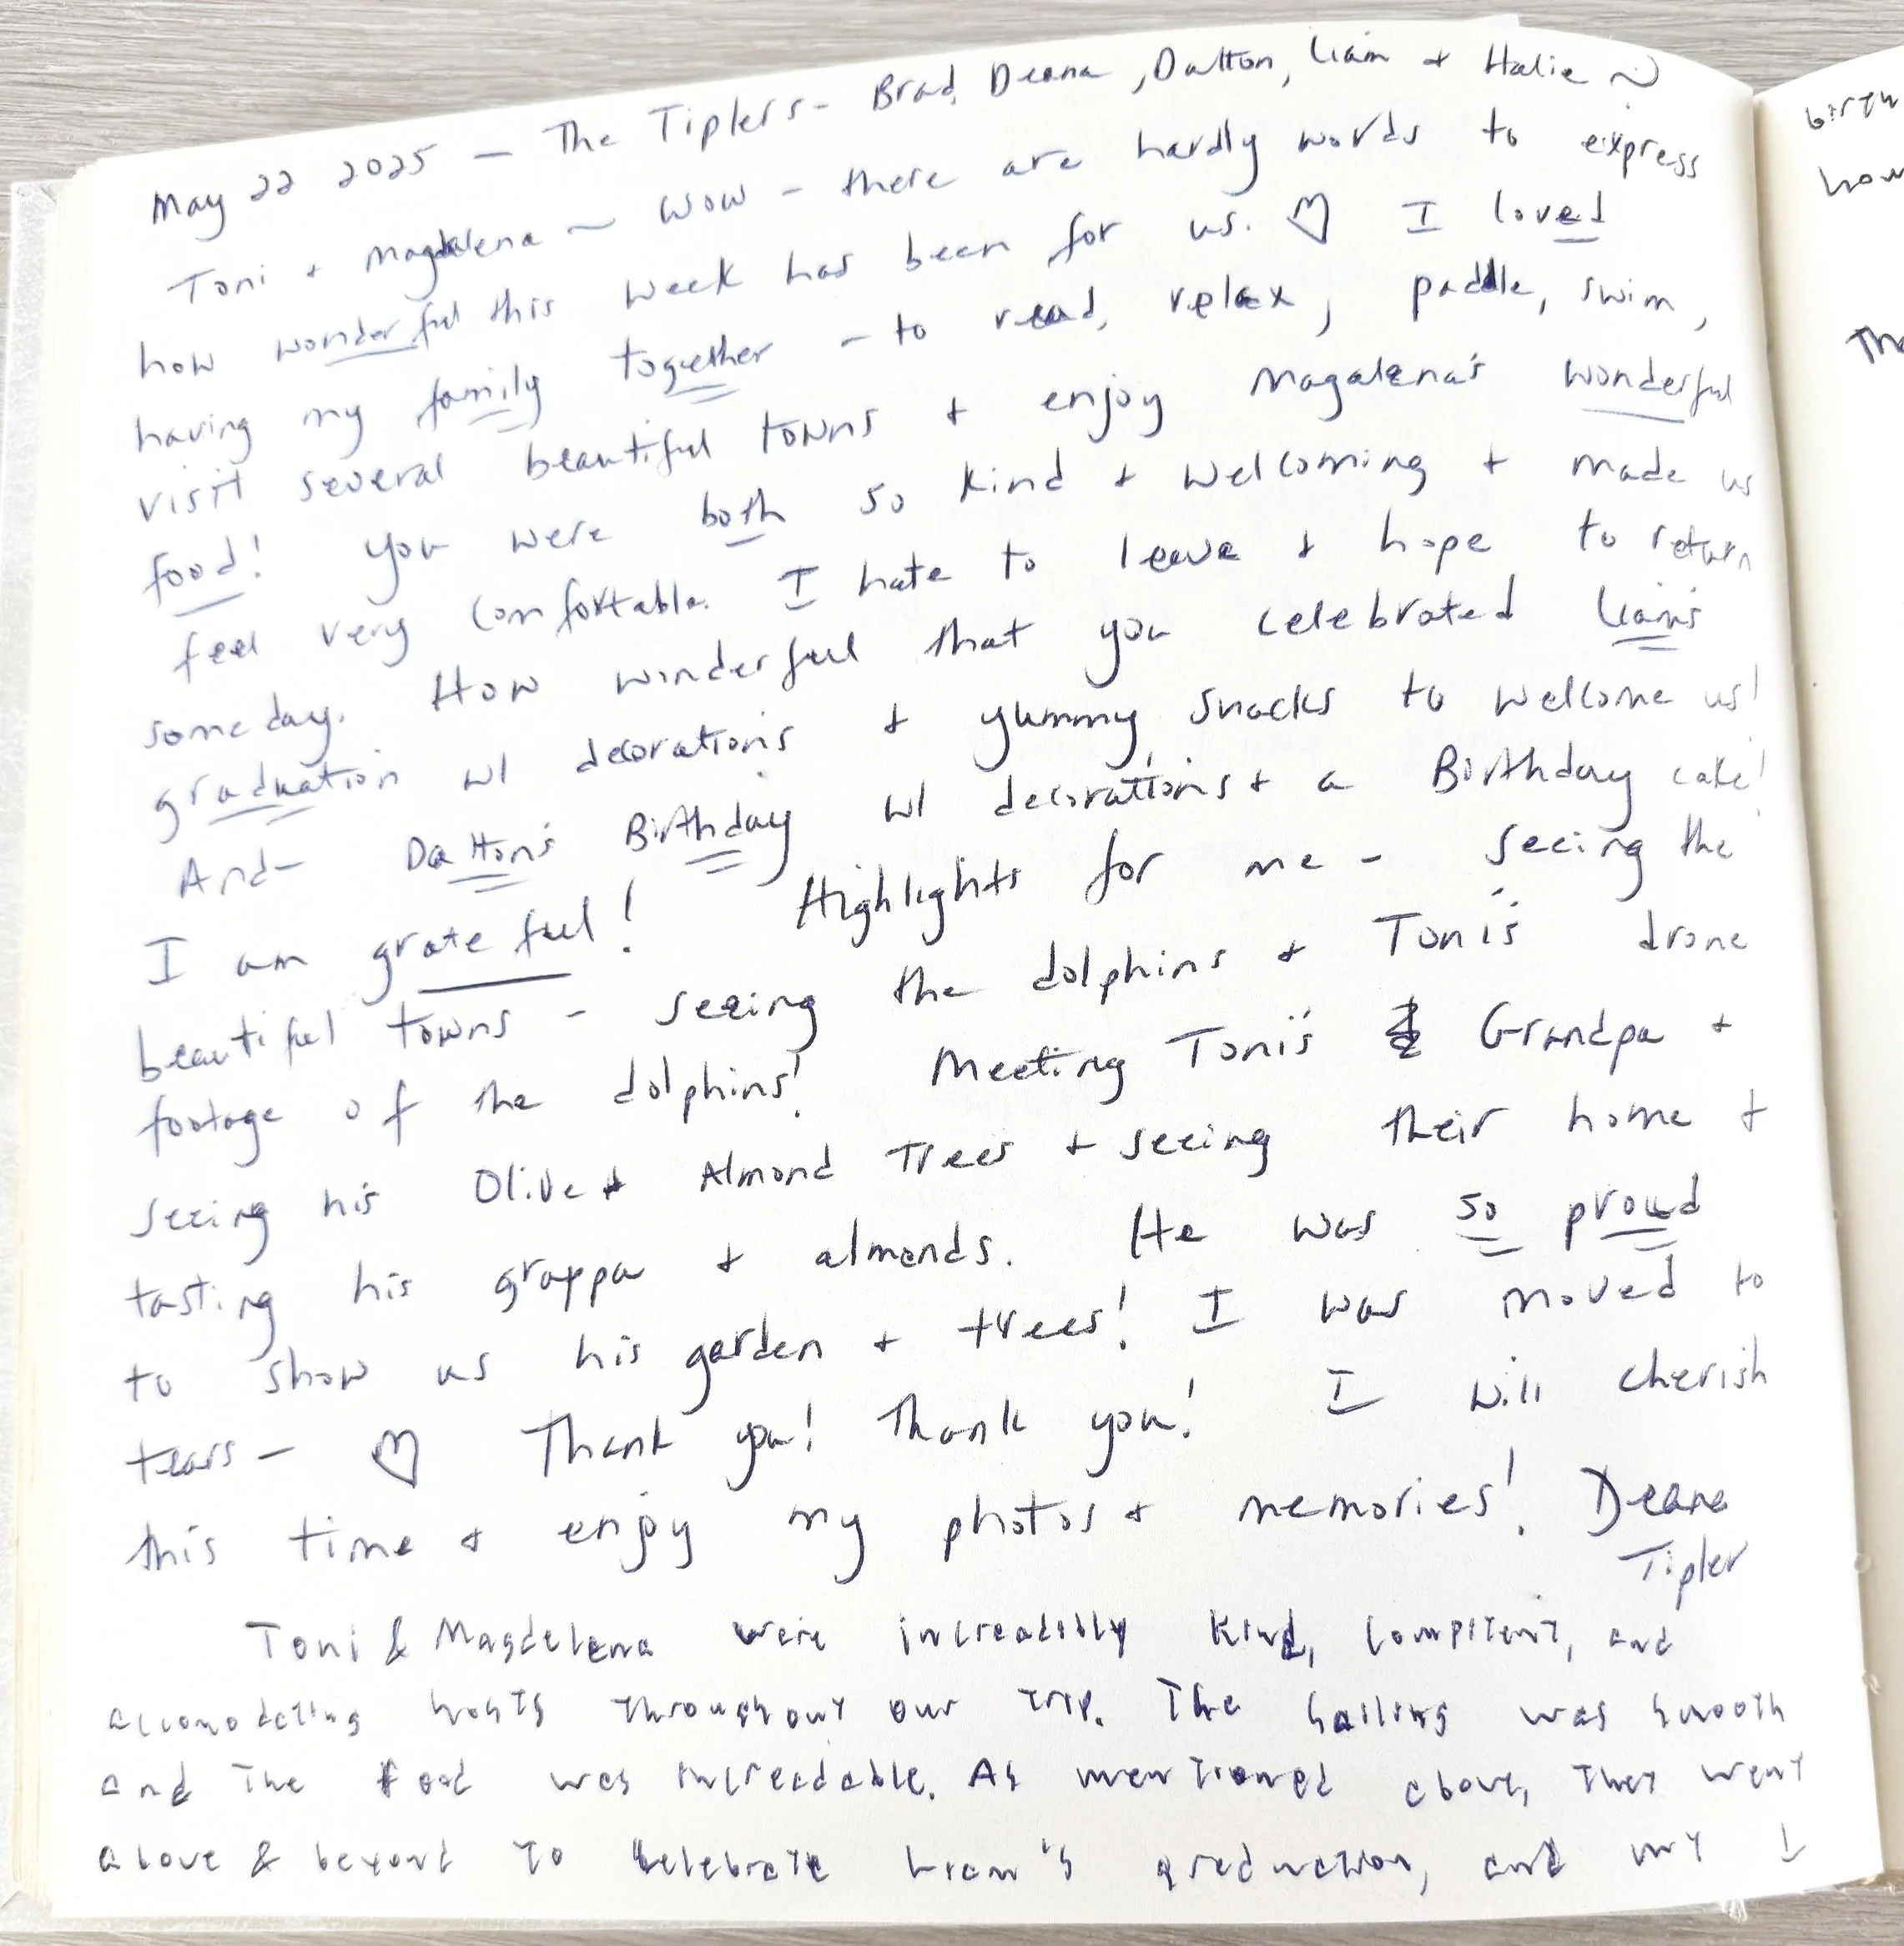 May 22 2025 — The Tiplers - Brad, Deana, Dalton, Liam + Halie ~
Toni + Magdalena ~ Wow - there are hardly words to express
how wonderful this week has been for us. ♡ I loved
having my family together - to read, relax, paddle, swim,
visit several beautiful towns + enjoy Magalena's wonderful
food! You were both so kind + welcoming + made us
feel very comfortable. I hate to leave + hope to return
someday. How wonderful that you celebrated Liam's
graduation w/ decorations + yummy snacks to welcome us!
And- Dalton's Birthday w/ decorations + a Birthday cake!
I am grateful! Highlights for me - seeing the
beautiful towns - seeing the dolphins + Toni's drone
footage of the dolphins! Meeting Toni's Grandpa +
seeing his Olive + Almond Trees + seeing their home +
tasting his grappa + almonds. He was so proud
to show us his garden + trees! I was moved to
tears — ♡ Thank you! Thank you! I will cherish
this time + enjoy my photos + memories! Deana
Tipler
Toni & Magdelena were increadibly kind, compitent, and
accomodating hosts throughout our trip. The sailing was smooth
and the food was increadable. As mentioned above, they went
above & beyond to celebrate Liam's graduation, and my ↓
birth
how